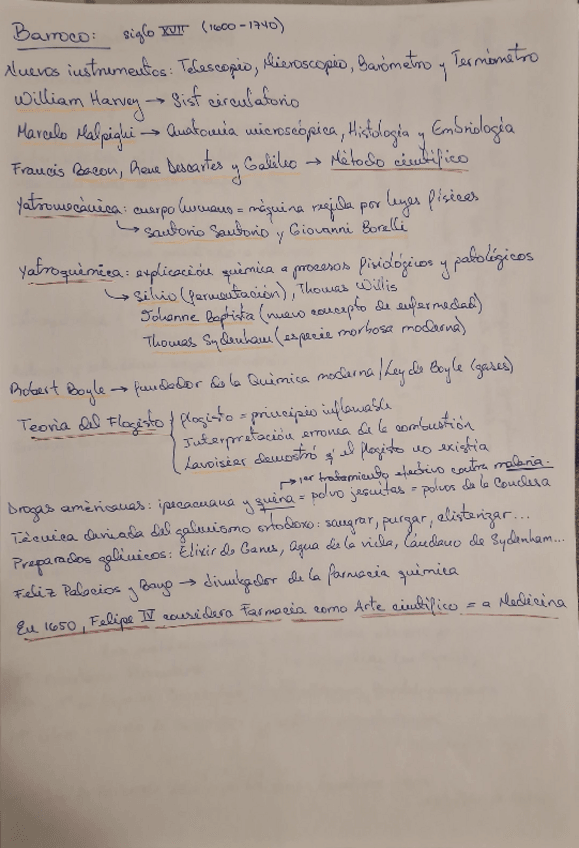 Barroco: siglo XVII (1600-1740)
Nuevos instrumentos: Telescopio, Microscopio, Barómetro y Termómetro
William Harvey → Sist circulatorio
Marcelo Malpighi → Anatomía microscópica, Histología y Embriología
Francis Bacon, Rene Descartes y Galileo → Método científico
Yatromecánica: cuerpo humano = máquina regida por leyes físicas
↳ Santorio Santorio y Giovanni Borelli
Yatroquímica: explicación química a procesos fisiológicos y patológicos
↳ Silvio (fermentación), Thomas Willis
Johanne Baptista (nuevo concepto de enfermedad)
Thomas Sydenham (especie morbosa moderna)
Robert Boyle → fundador de la Química moderna / Ley de Boyle (gases)
Teoría del Flogisto { flogisto = principio inflamable
Interpretación erronea de la combustión
Lavoisier demostró q' el flogisto no existía
↱ 1er tratamiento efectivo contra malaria.
Drogas américanas: ipecacuana y quina = polvo jesuitas = polvos de la Condesa
Técnica derivada del galenismo ortodoxo: sangrar, purgar, clisterizar...
Preparados galénicos: Elixir de Ganes, agua de la vida, Láudano de Sydenham...
Feliz Palacios y Bayo → divulgador de la farmacia química
En 1650, Felipe IV considera Farmacia como Arte científico = a Medicina